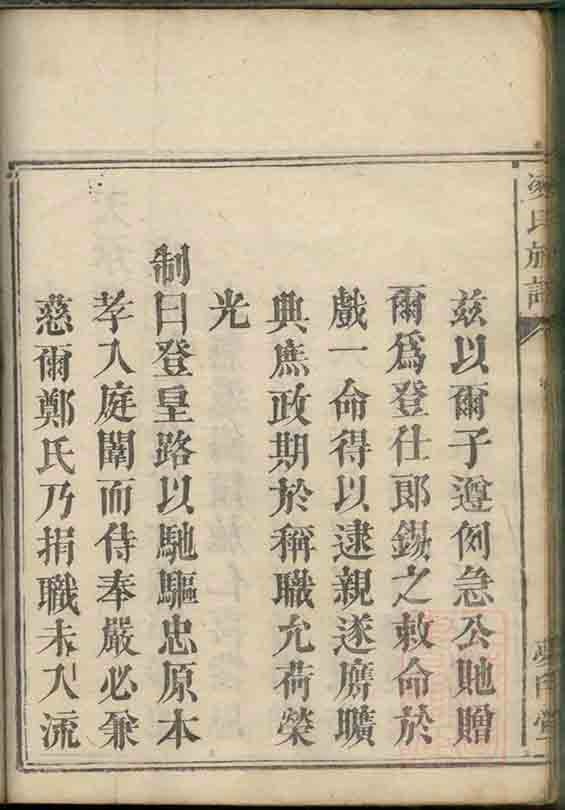 氏族譜
茲以爾子遵例急公貤贈
爾為登仕郎錫之敕命於
戲一命得以逮親遂膺曠
典庶政期於稱職允荷榮
光
制曰登皇路以馳驅忠原本
孝入庭闈而侍奉嚴必兼
慈爾鄭氏乃捐職未入流